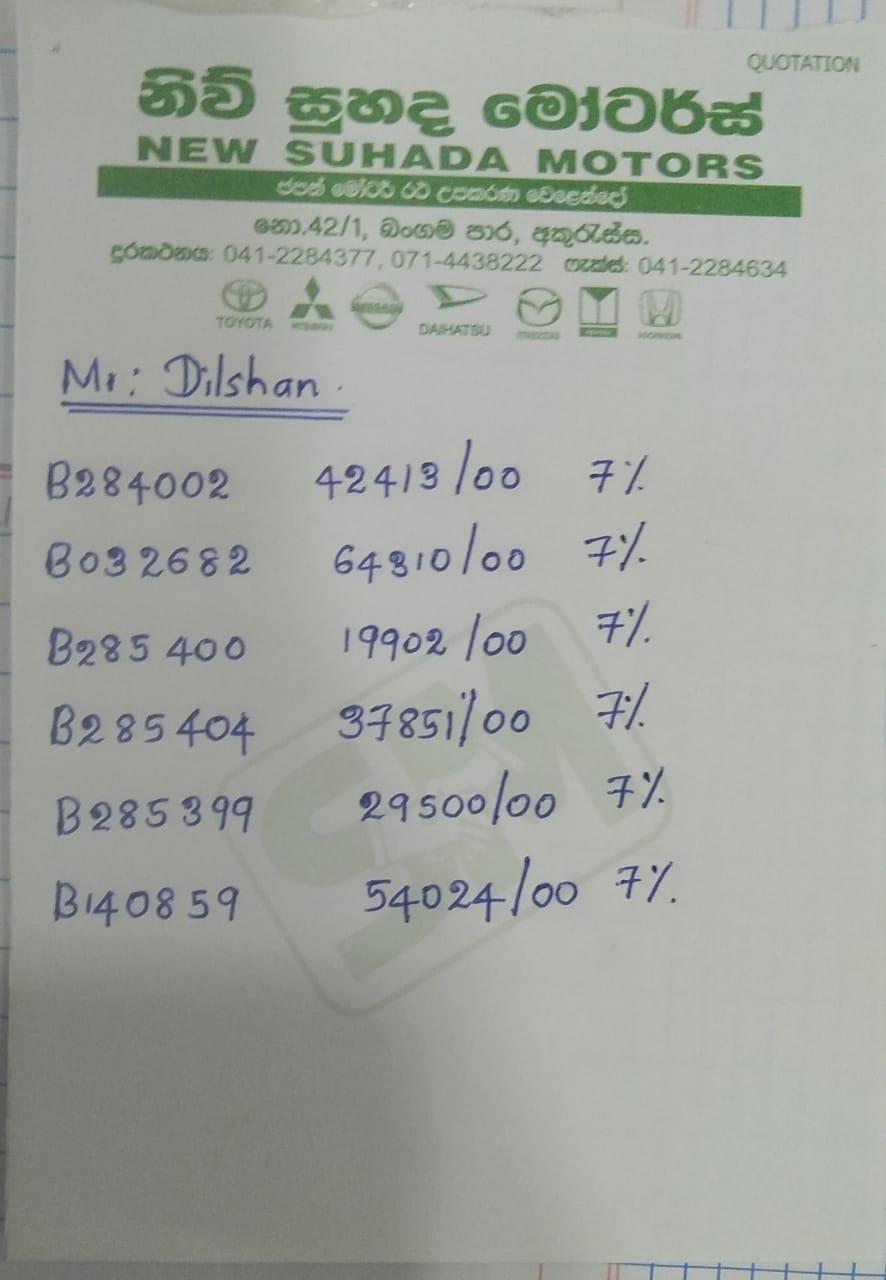 QUOTATION
නිව් සුහද මෝටර්ස්
NEW SUHADA MOTORS
ජපන් මෝටර් රථ උපකරණ වෙළෙන්දෝ
නො.42/1, බංගම පාර, අකුරැස්ස.
දුරකථනය: 041-2284377, 071-4438222 ෆැක්ස්: 041-2284634
TOYOTA NISSAN DAIHATSU HONDA
Mr: Dilshan.
B284002 42413/00 7%
B032682 64310/00 7%.
B285400 19902/00 7%.
B285404 37851/00 7%.
B285399 29500/00 7%.
B140859 54024/00 7%.
SM